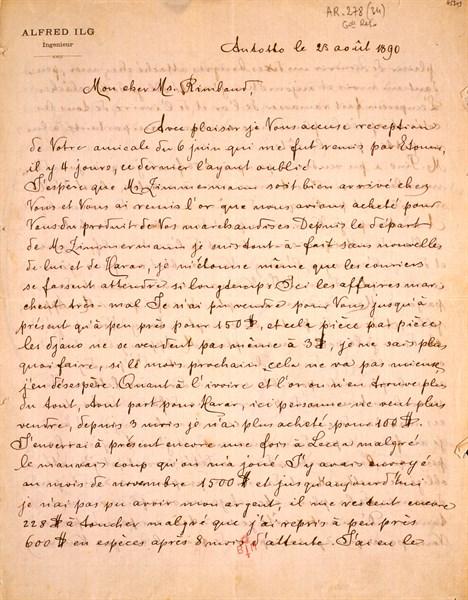 AR-278 (34)
ALFRED ILG
Ingenieur
Antotto le 23 août 1890
Mon cher Mr. Rimbaud,
Avec plaisir je Vous accuse réception
de Votre amicale du 6 juin qui me fut remis par
il y 4 jours, ce dernier l'ayant oublié.
J'espère que Mr Zimmermann soit bien arrivé chez
Vous et Vous ai remis l'or que nous avions acheté pour
Vous du produit de Vos marchandises. Depuis le départ
de Mr Zimmermann je suis tout-à-fait sans nouvelles
de lui et de Harar, je m'étonne même que les couriers
se fassent attendre si longtemps. Ici les affaires mar-
chent très-mal Je n'ai pu vendre pour Vous jusqu'à
présent qu'à peu près pour 150 $, et cela pièce par pièce
les djano ne se vendent pas même à 3 $, je ne sais plus
quoi faire, si le mois prochain cela ne va pas mieux
j'en désespère. Quant à l'ivoire et l'or on n'en trouve plus
du tout, tout part pour Harar, ici personne ne veut plus
vendre, depuis 3 mois je n'ai plus acheté pour 100 $.
J'enverrai à présent encore une fois à Lecca malgré
le mauvais coup qu'on m'a joué J'y avais envoyé
au mois de novembre 1500 $ et jusqu'aujourd'hui
je n'ai pas pu avoir mon argent, il me restent encore
228 $ à toucher malgré que j'ai repris à peu près
600 $ en espèces après 8 mois d'attente. J'ai en le